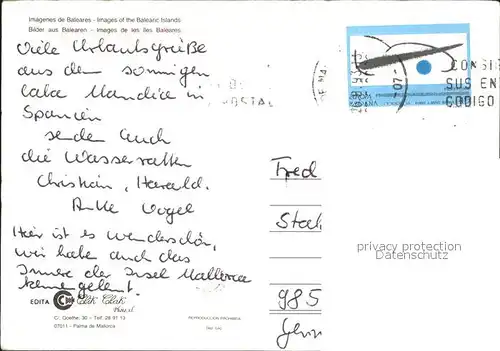 Imágenes de Baleares - Images of the Balearic Islands
Bilder aus Balearen - Images de les Iles Baleares
Viele Urlaubsgrüße
aus dem sonnigen
Cala Mandia in
Spanien
senden Euch
die Wasserratten
Christian, Harald,
Anke Vogel
Hier ist es wunderschön,
wir haben auch das
Innere der Insel Mallorca
kennengelernt!
EDITA Clik Clak
C/. Goethe, 30 - Tlf. 28 91 13
07011 - Palma de Mallorca
REPRODUCCION PROHIBIDA
POSTAL
07
CONSI
SUS EN
CODIGO
ESPAÑA
Fred
985
privacy protection
Datenschutz